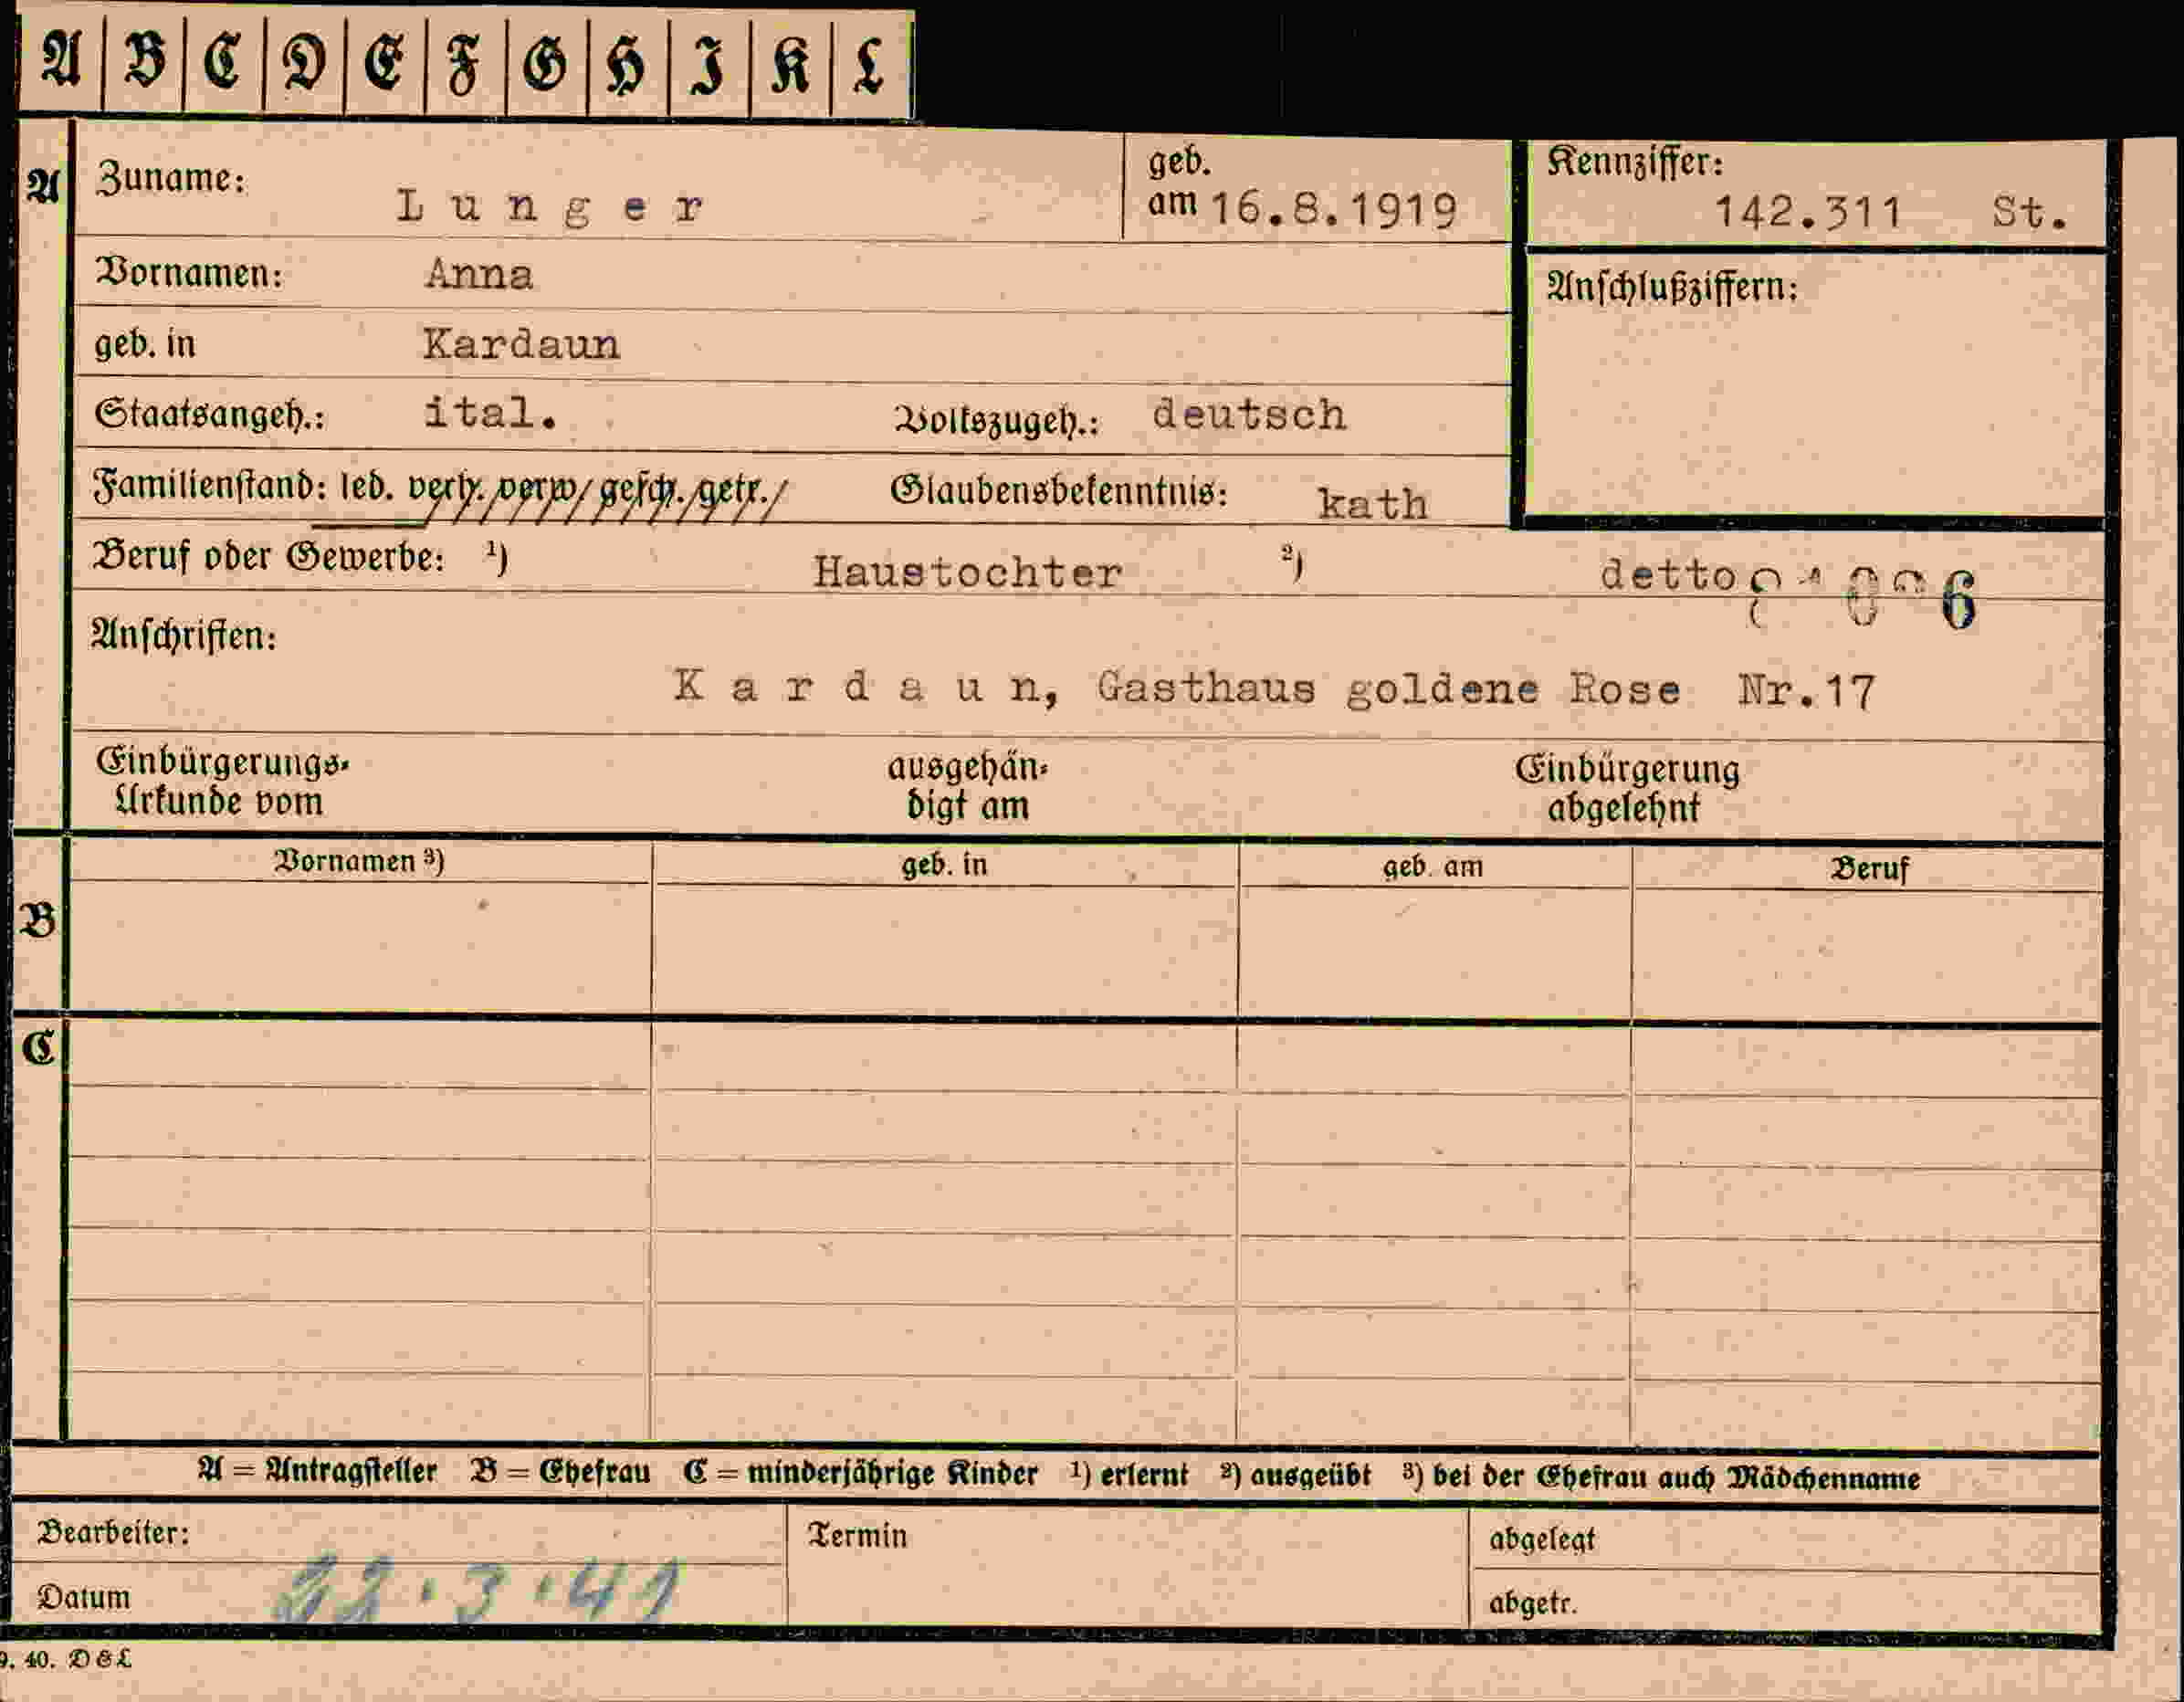 A B C D E F G H I K L
A Zuname: Lunger geb. am 16.8.1919 Kennziffer: 142.311 St.
Vornamen: Anna Anschlußziffern:
geb. in Kardaun
Staatsangeh.: ital. Volkszugeh.: deutsch
Familienstand: led. verh. verw. gesch. getr. Glaubensbekenntnis: kath
Beruf oder Gewerbe: ¹) Haustochter ²) detto
Anschriften:
Kardaun, Gasthaus goldene Rose Nr.17
Einbürgerungs- ausgehän- Einbürgerung
Urkunde vom digt am abgelehnt
Vornamen ³) geb. in geb. am Beruf
B
C
A = Antragsteller B = Ehefrau C = minderjährige Kinder ¹) erlernt ²) ausgeübt ³) bei der Ehefrau auch Mädchenname
Bearbeiter: Termin abgelegt
Datum 22.3.41 abgetr.
9. 40. D & L